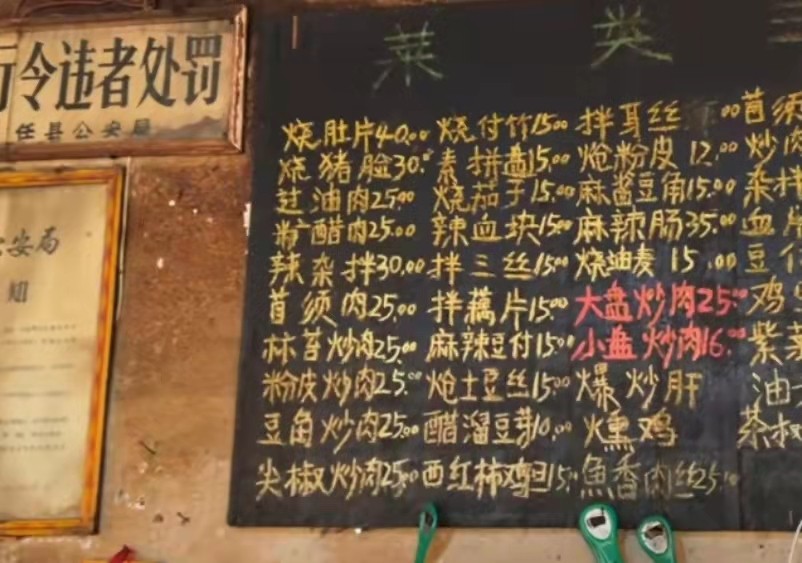 令违者处罚
任县公安局
安局
知
莱 英
烧肚片40.00 烧付竹15.00 拌耳丝 .00 苜须
烧猪脸30.00 素拼盘15.00 炝粉皮 12.00 炒肉
过油肉25.00 烧茄子15.00 麻酱豆角15.00 杂拌
醋肉25.00 辣血块15.00 麻辣肠35.00 血片
辣杂拌30.00 拌三丝15.00 烧油麦 15.00 豆
苜须肉25.00 拌藕片15.00 大盘炒肉25.00 鸡
林苔炒肉25.00 麻辣豆付15.00 小盘炒肉16.00 紫菜
粉皮炒肉25.00 炝土豆丝15.00 爆炒肝 油
豆角炒肉25.00 醋溜豆芽10.00 燻鸡 茶椒
尖椒炒肉25.00 西红柿鸡旦15. 魚香肉丝25.00